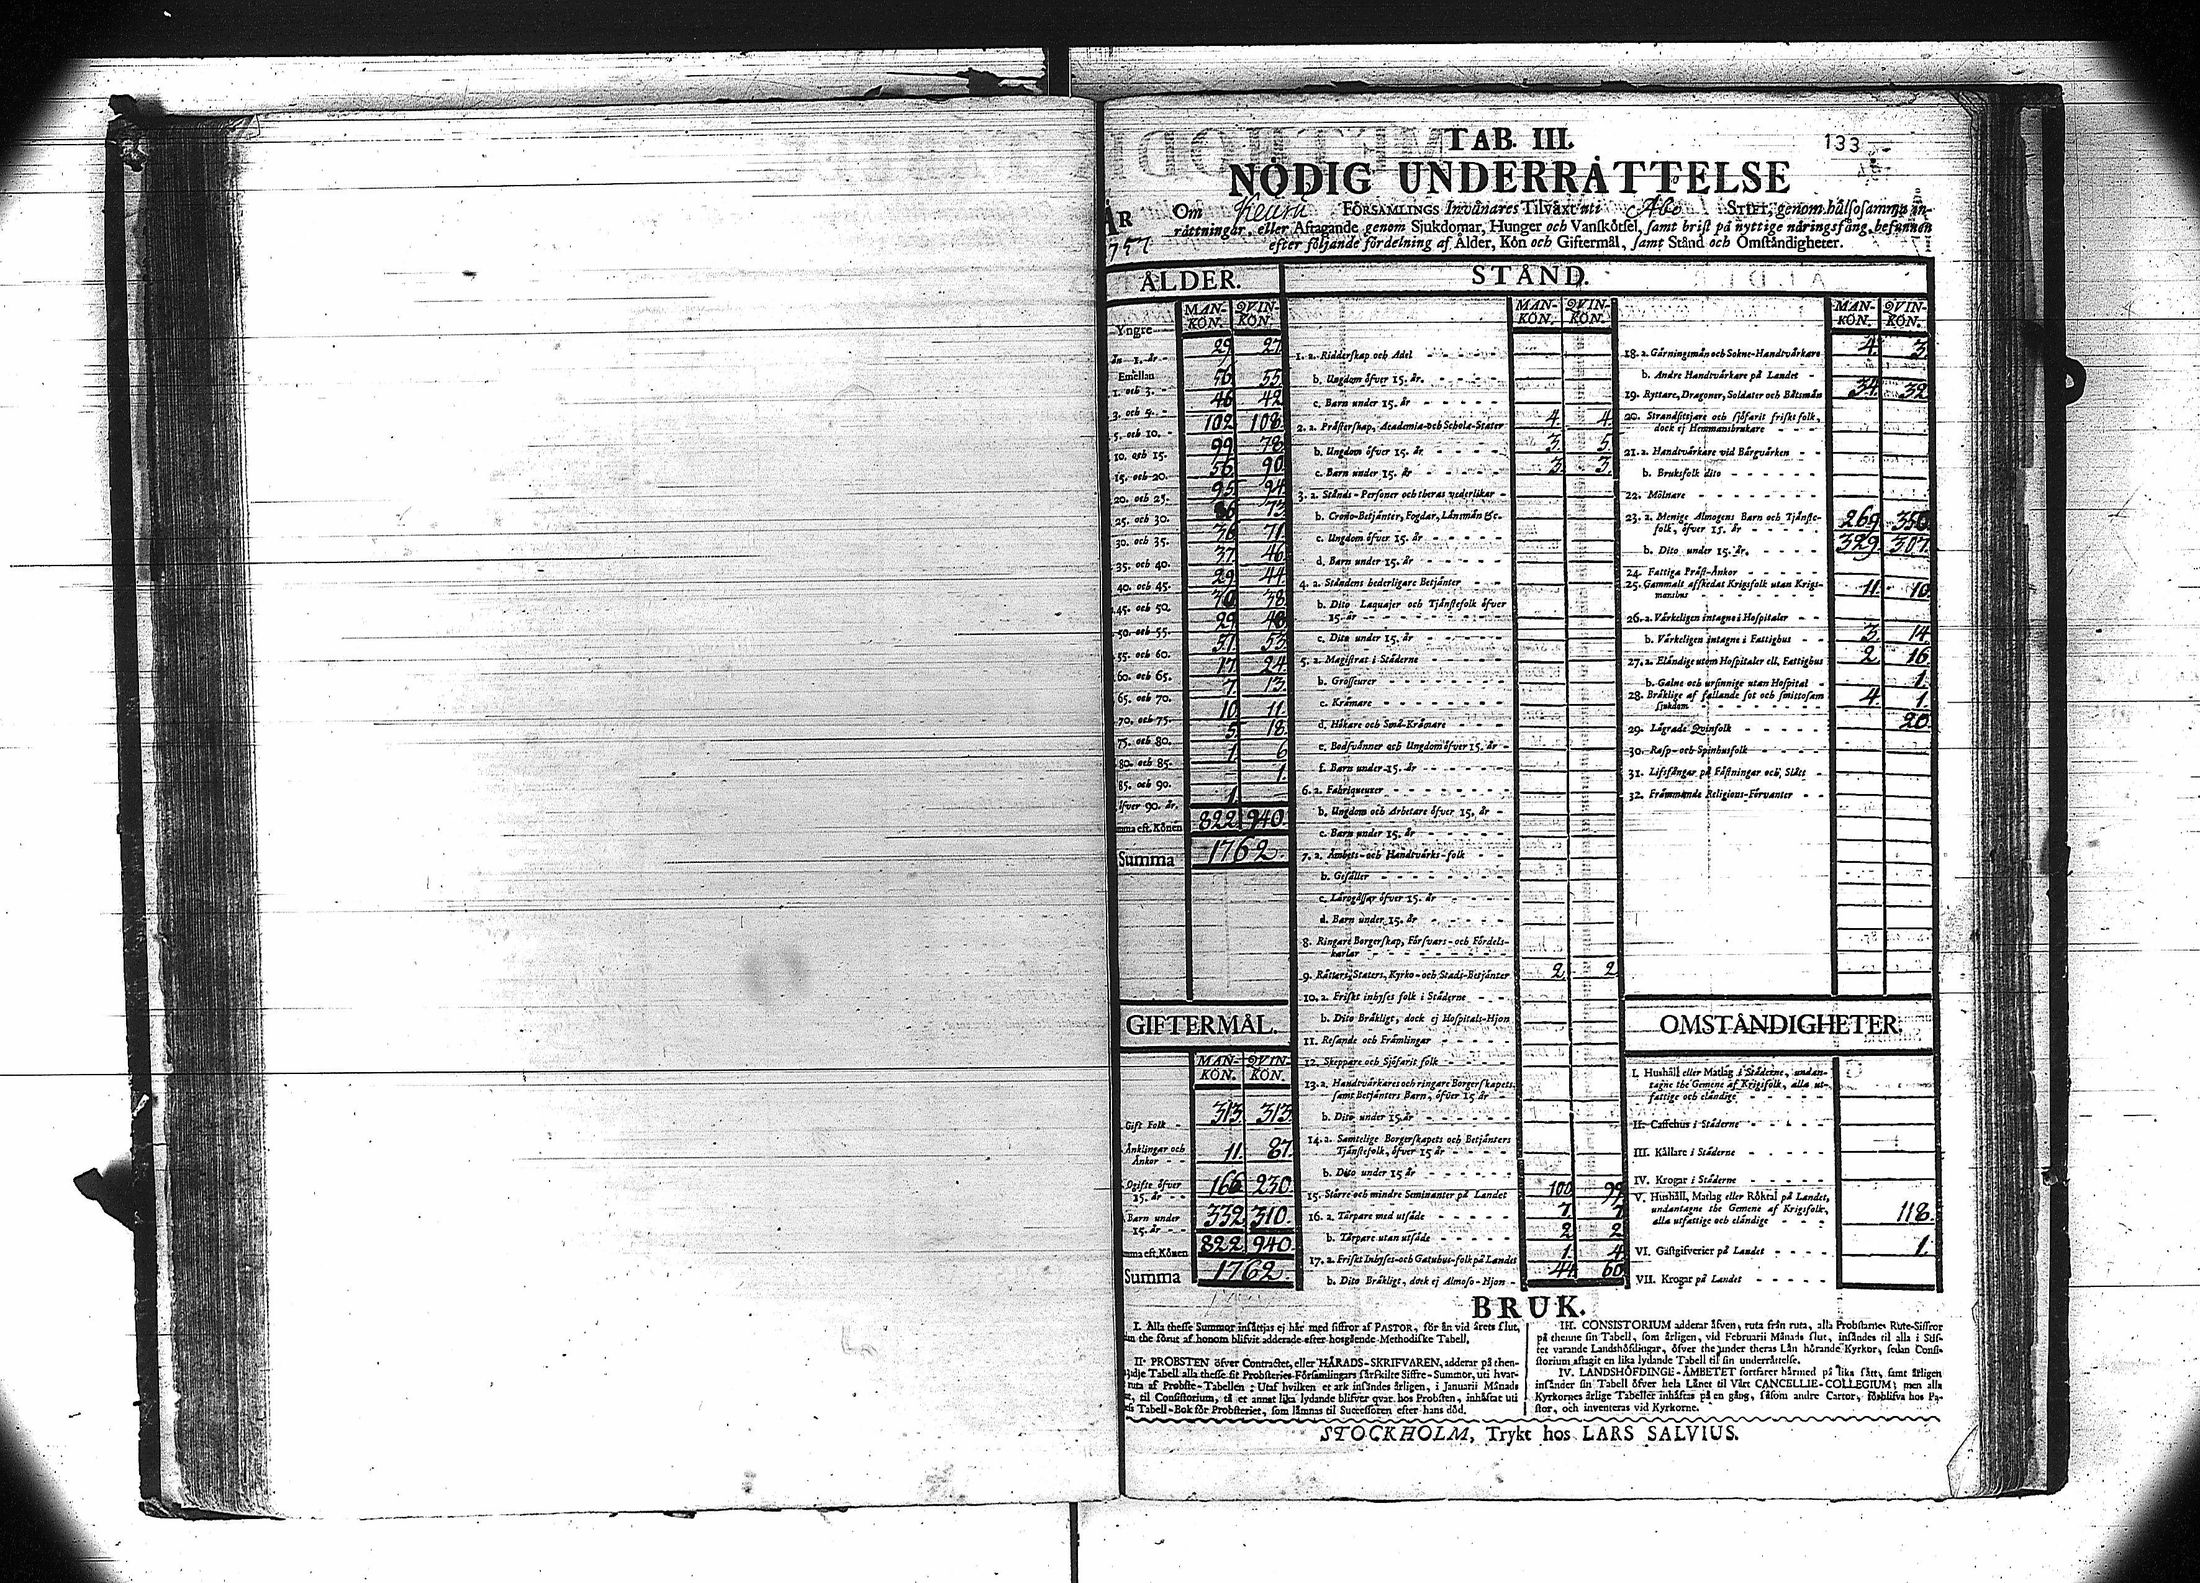 133
TAB. III.
NÖDIG UNDERRÅTTELSE
ÅR 1757
Om Keuru FÖRSAMLINGS Invånares Tilväxt uti Åbo STIFT, genom hålsosamma in-
råttningar, eller Aftagande genom Sjukdomar, Hunger och Vanskötsel, samt brist på nyttige näringsfång, befunnen
efter följande fördelning af Ålder, Kön och Giftermål, samt Stånd och Omståndigheter.
ÅLDER.
MAN-KÖN. QVIN-KÖN.
Yngre
än 1. år - 29 27
Emellan
1. och 3. - 50 55
3. och 5. - 46 42
5. och 10. - 102 108
10. och 15. 99 78
15. och 20. 56 90
20. och 25. 95 94
25. och 30. 73
30. och 35. 36 71
35. och 40. 37 46
40. och 45. 29 44
45. och 50. 30 38
50. och 55. 29
55. och 60. 57 53
60. och 65. 17 24
65. och 70. 7 13
70. och 75. 10 11
75. och 80. 5 18
80. och 85. 1 6
85. och 90. 1
öfver 90. år. 1
Summa eft. Könen 822 940
Summa 1762.
GIFTERMÅL.
MAN-KÖN. QVIN-KÖN.
Gift Folk - 313 313
Änklingar och
Änkor - - 11. 87.
Ogifte öfver
15. år - - 166 230
Barn under
15. år - - 332 310.
Summa eft. Könen 822 940
Summa 1762.
STÅND.
MAN-KÖN. QVIN-KÖN.
1. a. Ridderskap och Adel
b. Ungdom öfver 15. år.
c. Barn under 15. år
2. a. Prästerskap, Academiæ och Scholæ-Stater 4. 4.
b. Ungdom öfver 15. år 3. 5.
c. Barn under 15. år 3. 3.
3. a. Stånds-Personer och theras vederlikar
b. Crono-Betjänter, Fogdar, Länsmän &c.
c. Ungdom öfver 15. år
d. Barn under 15. år
4. a. Ståndens hederligare Betjänter
b. Dito Laquajer och Tjänstefolk öfver
15. år
c. Dito under 15. år
5. a. Magistrat i Städerne
b. Grosseurer
c. Krämare
d. Hökare och Små-Krämare
e. Bodsvänner och Ungdom öfver 15. år
f. Barn under 15. år
6. a. Fabriqueurer
b. Ungdom och Arbetare öfver 15. år
c. Barn under 15. år
7. a. Ämbets- och Handtvärks-folk
b. Gesäller
c. Lärogåssar öfver 15. år
d. Barn under 15. år
8. Ringare Borgerskap, Försvars- och Fördels-
karlar
9. Rättars, Staters, Kyrko- och Stads-Betjänter 2. 2
10. a. Friskt inhyses folk i Städerne
b. Dito Bräkligt, dock ej Hospitals-Hjon
11. Resande och Främlingar
12. Skeppare och Sjöfarit folk
13. a. Handtvärkares och ringare Borgerskapets,
samt Betjänters Barn, öfver 15 år
b. Dito under 15. år
14. a. Samtelige Borgerskapets och Betjänters
Tjänstefolk, öfver 15 år
b. Dito under 15 år
15. Större och mindre Seminanter på Landet 100 99
16. a. Tårpare med utsäde 7. 7
b. Tårpare utan utsäde 2 2
17. a. Friskt Inhyses- och Gatuhus-folk på Landet 1. 4
b. Dito Bräkligt, dock ej Almoso-Hjon 41. 60
MAN-KÖN. QVIN-KÖN.
18. a. Gärningsmän och Sokne-Handtvärkare 4. 3
b. Andre Handtvärkare på Landet
19. Ryttare, Dragoner, Soldater och Båtsmän 34. 32
20. Strandsittjare och sjöfarit friskt folk,
dock ej Hemmansbrukare
21. a. Handtvärkare vid Bärgvärken
b. Bruksfolk dito
22. Mölnare
23. a. Menige Almogens Barn och Tjänste-
folk, öfver 15. år 269. 350
b. Dito under 15. år. 329. 307.
24. Fattiga Präst-Änkor
25. Gammalt afskedat Krigsfolk utan Krigs-
manshus 11. 10
26. a. Värkeligen intagne i Hospitaler
b. Värkeligen intagne i Fattighus 3. 14
27. a. Eländige utom Hospitaler ell. Fattighus 2. 16
b. Galne och ursinnige utan Hospital 1.
28. Bräklige af fallande sot och smittosam
sjukdom 4. 1.
29. Lägrade Qvinfolk 20.
30. Rasp- och Spinhusfolk
31. Lifsfångar på Fästningar och Slått
32. Främmande Religions-Förvanter
OMSTÅNDIGHETER.
I. Hushåll eller Matlag i Städerne, undan-
tagne the Gemene af Krigsfolk, alla ut-
fattige och eländige
II. Caffehus i Städerne
III. Källare i Städerne
IV. Krogar i Städerne
V. Hushåll, Matlag eller Röktal på Landet,
undantagne the Gemene af Krigsfolk,
alla utfattige och eländige 118.
VI. Gästgifverier på Landet 1.
VII. Krogar på Landet
BRUK.
I. Alla thesse Summor insättjas ej här med siffror af PASTOR, för än vid årets slut,
the förut af honom blifvit adderade efter hosgående Methodiske Tabell,
II. PROBSTEN öfver Contractet, eller HÄRADS-SKRIFVAREN, adderar på then-
Tabell alla thesse sit Probsteries Församlingars särskilte Siffre-Summor, uti hvar-
ruta af Probste-Tabellen; Utaf hvilken et ark insändes årligen, i Januarii Månads
til Consistorium, så et annat lika lydande blifver qvar hos Probsten, inhäftat uti
Tabell-Bok för Probsteriet, som lämnas til Successoren efter hans död.
III. CONSISTORIUM adderar äfven, ruta från ruta, alla Probstarnes Rute-Siffror
på thenne sin Tabell, som årligen, vid Februarii Månads slut, insändes til alla i Stif-
tet varande Landshöfdingar, öfver the under theras Län hörande Kyrkor, sedan Consi-
storium aftagit en lika lydande Tabell til sin underrättelse.
IV. LANDSHÖFDINGE-ÄMBETET fortfarer härmed på lika sätt, samt årligen
insänder sin Tabell öfver hela Länet til Vårt CANCELLIE-COLLEGIUM; men alla
Kyrkornes årlige Tabeller inhäftas på en gång, såsom andre Cartor, förblifva hos Pa-
stor, och inventeras vid Kyrkorne.
STOCKHOLM, Trykt hos LARS SALVIUS.